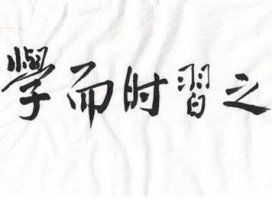 學而时習之